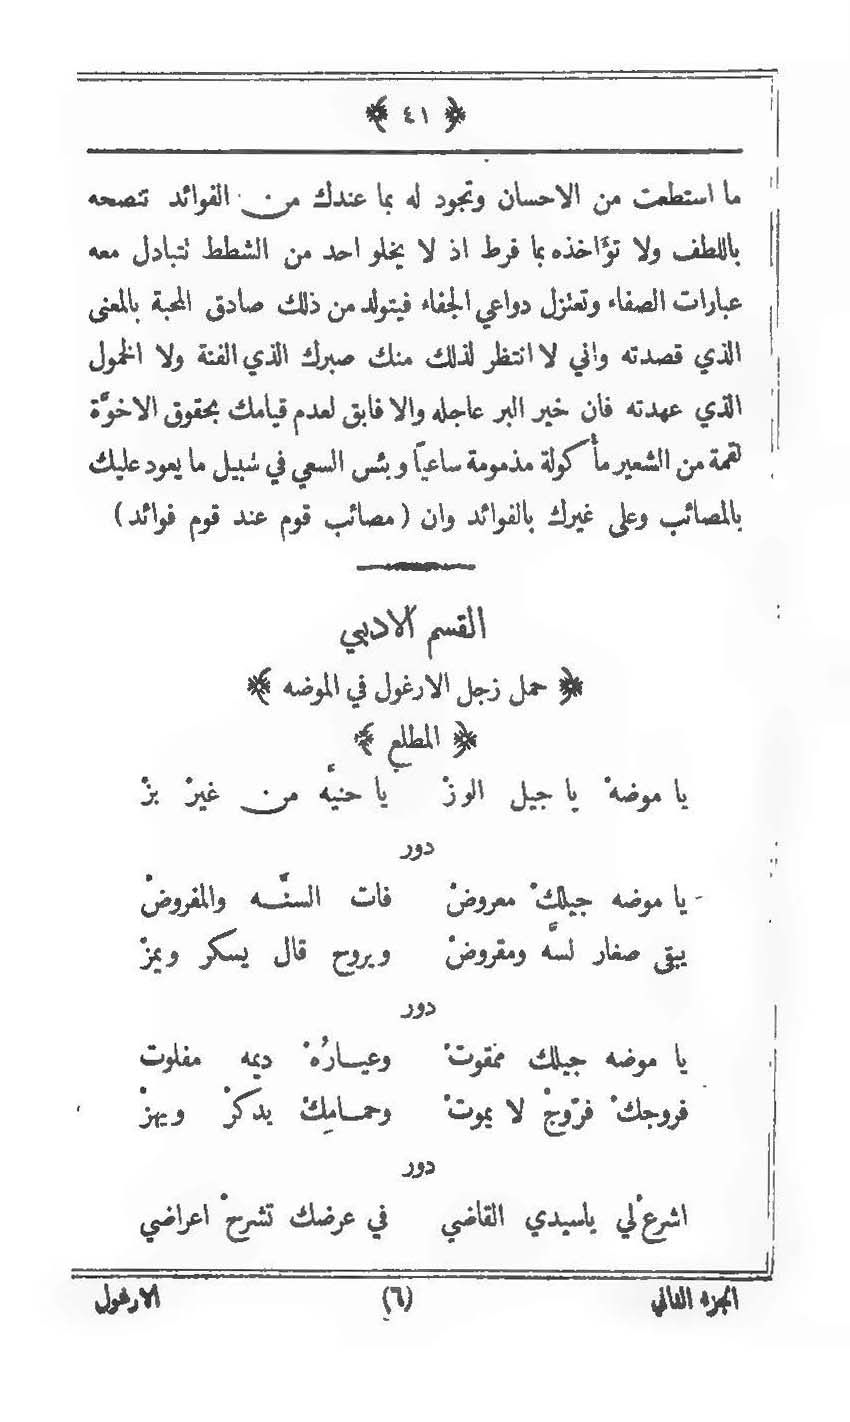 ﴿ ٤١ ﴾
ما استطعت من الاحسان وتجود له بما عندك من الفوائد تنصحه
باللطف ولا تؤاخذه بما فرط اذ لا يخلو احد من الشطط تتبادل معه
عبارات الصفاء وتعتزل دواعي الجفاء فيتولد من ذلك صادق المحبة بالمعنى
الذي قصدته واني لا انتظر لذلك منك صبرك الذي الفتة ولا الخمول
الذي عهدته فان خير البر عاجله والا فابق لعدم قيامك بحقوق الاخوَّة
لقمة من الشعير مأكولة مذمومة ساعياً وبئس السعي في سبيل ما يعود عليك
بالمصائب وعلى غيرك بالفوائد وان (مصائب قوم عند قوم فوائد)
القسم الادبي
﴿ حمل زجل الارغول في الموضه ﴾
﴿ المطلع ﴾
يا موضهْ يا جيل الوزْ يا حنيَّه من غيرْ بزْ
دور
يا موضه جيلكْ معروضْ فات السنَّه والمفروضْ
يبقى صغار لسَّه ومقروضْ ويروح قال يسكر ويمزْ
دور
يا موضه جيلك ممقوتْ وعيارُهْ ديمه مفلوت
فروجكْ فرّوجْ لا يموتْ وحمامِكْ يدكرْ ويهزْ
دور
اشرعْ لي ياسيدي القاضي في عرضك تشرحْ اعراضي
الجزء الثاني (٦) الارغول